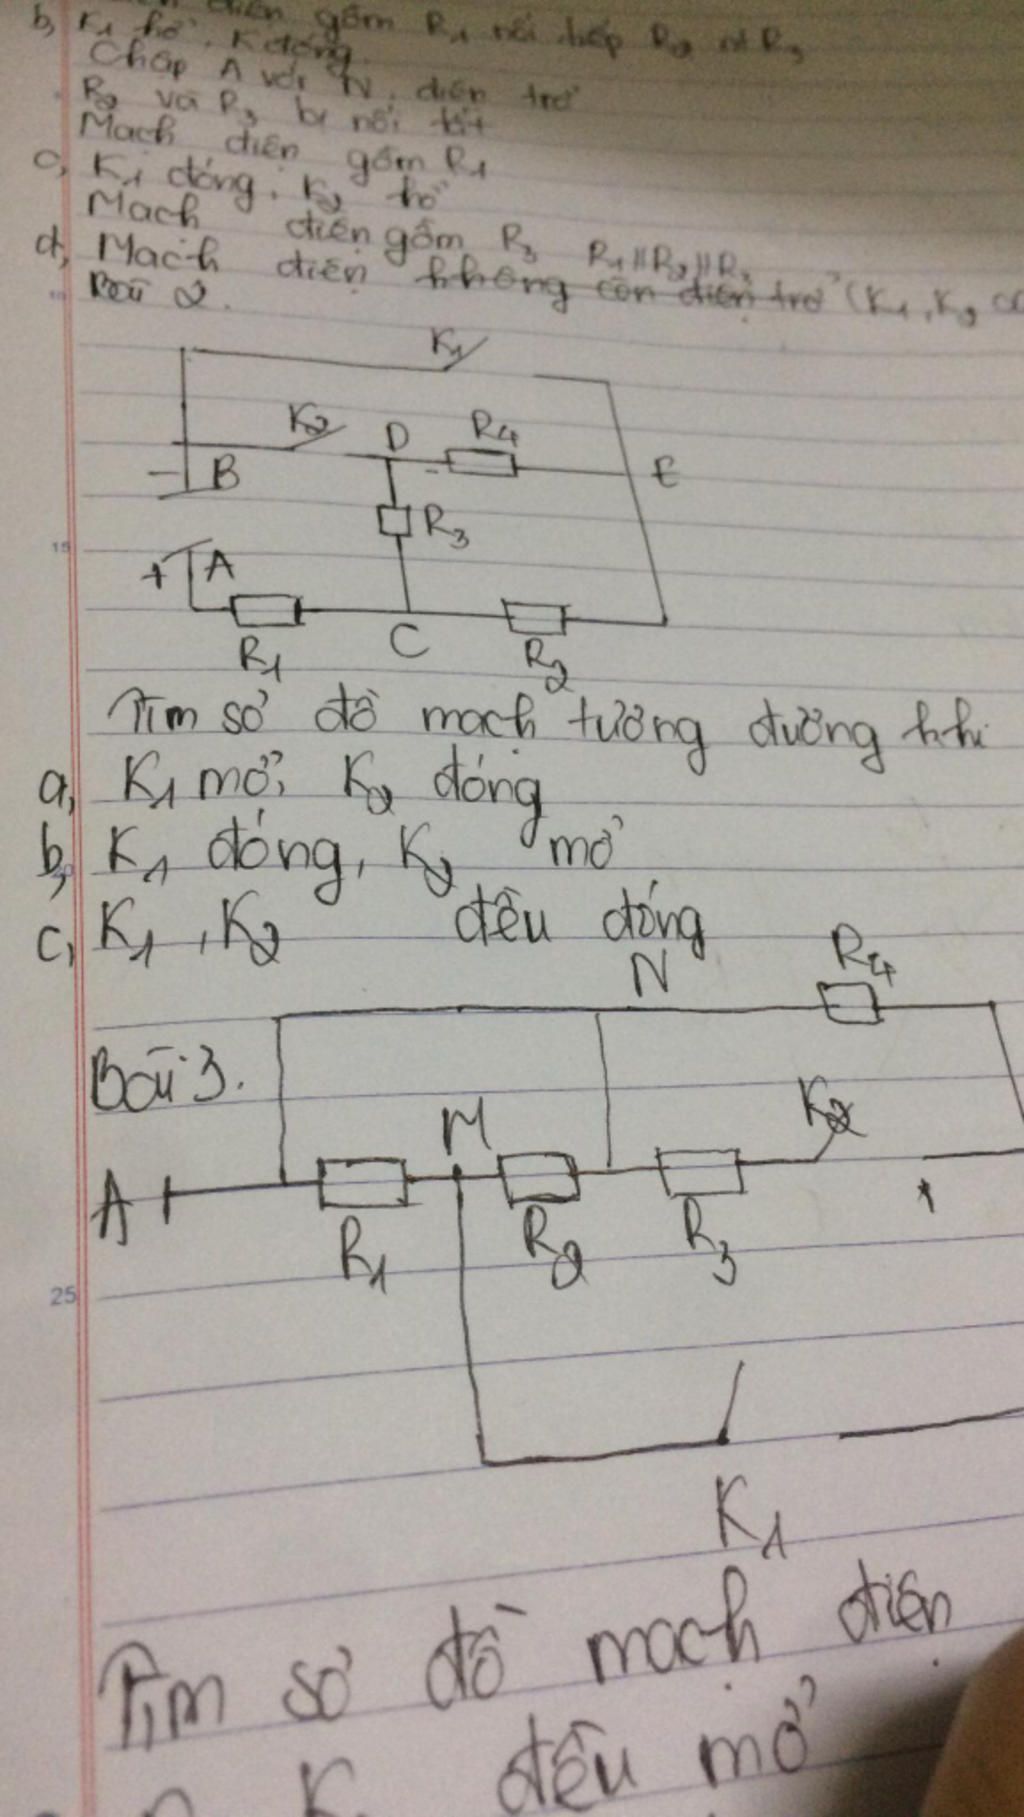 điện gồm R1 nối tiếp R2 nt R3
b, K1 hở, K2 đóng
Chập A với N, điện trở
R2 và R3 bị nối tắt
Mạch điện gồm R1
c, K1 đóng, K2 hở
Mạch điện gồm R3 R1//R2//R3
d, Mạch điện không còn điện trở (K1, K2
Bài 2.
K1
K2 D R4
- B E
R3
+ A
R1 C R2
Tìm sơ đồ mạch tương đương khi
a, K1 mở, K2 đóng
b, K1 đóng, K2 mở
c, K1, K2 đều đóng
N R4
Bài 3.
M K2
A
R1 R2 R3
K1
Tìm sơ đồ mạch điện
K đều mở